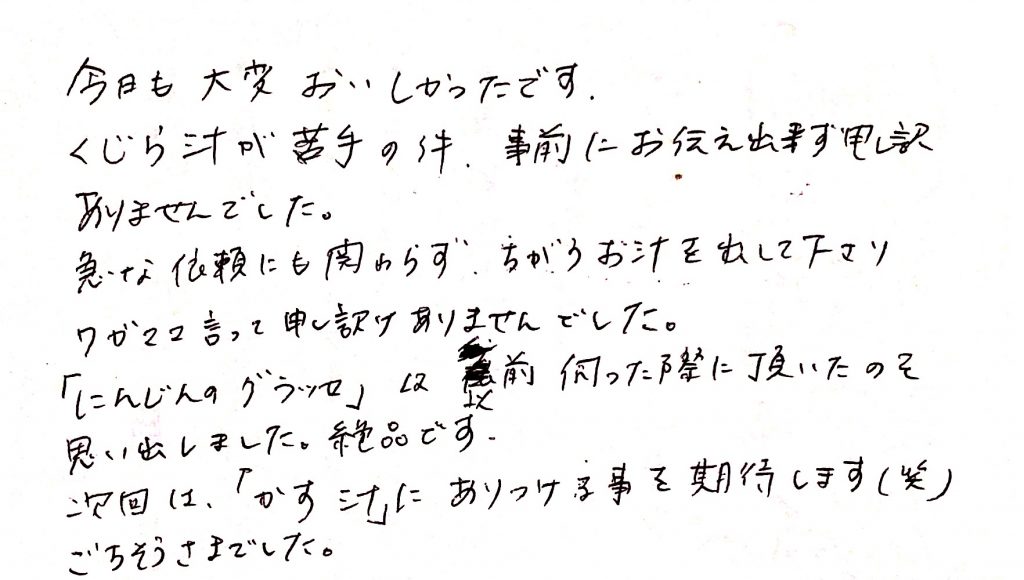 今日も大変おいしかったです.
くじら汁が苦手の件、事前にお伝え出来ず申し訳
ありませんでした。
急な依頼にも関わらず、ちがうお汁を出して下さり
ワガママ言って申し訳けありませんでした。
「にんじんのグラッセ」は以前伺った際に頂いたのを
思い出しました。絶品です.
次回は、「かす汁」にありつける事を期待します(笑)
ごちそうさまでした。